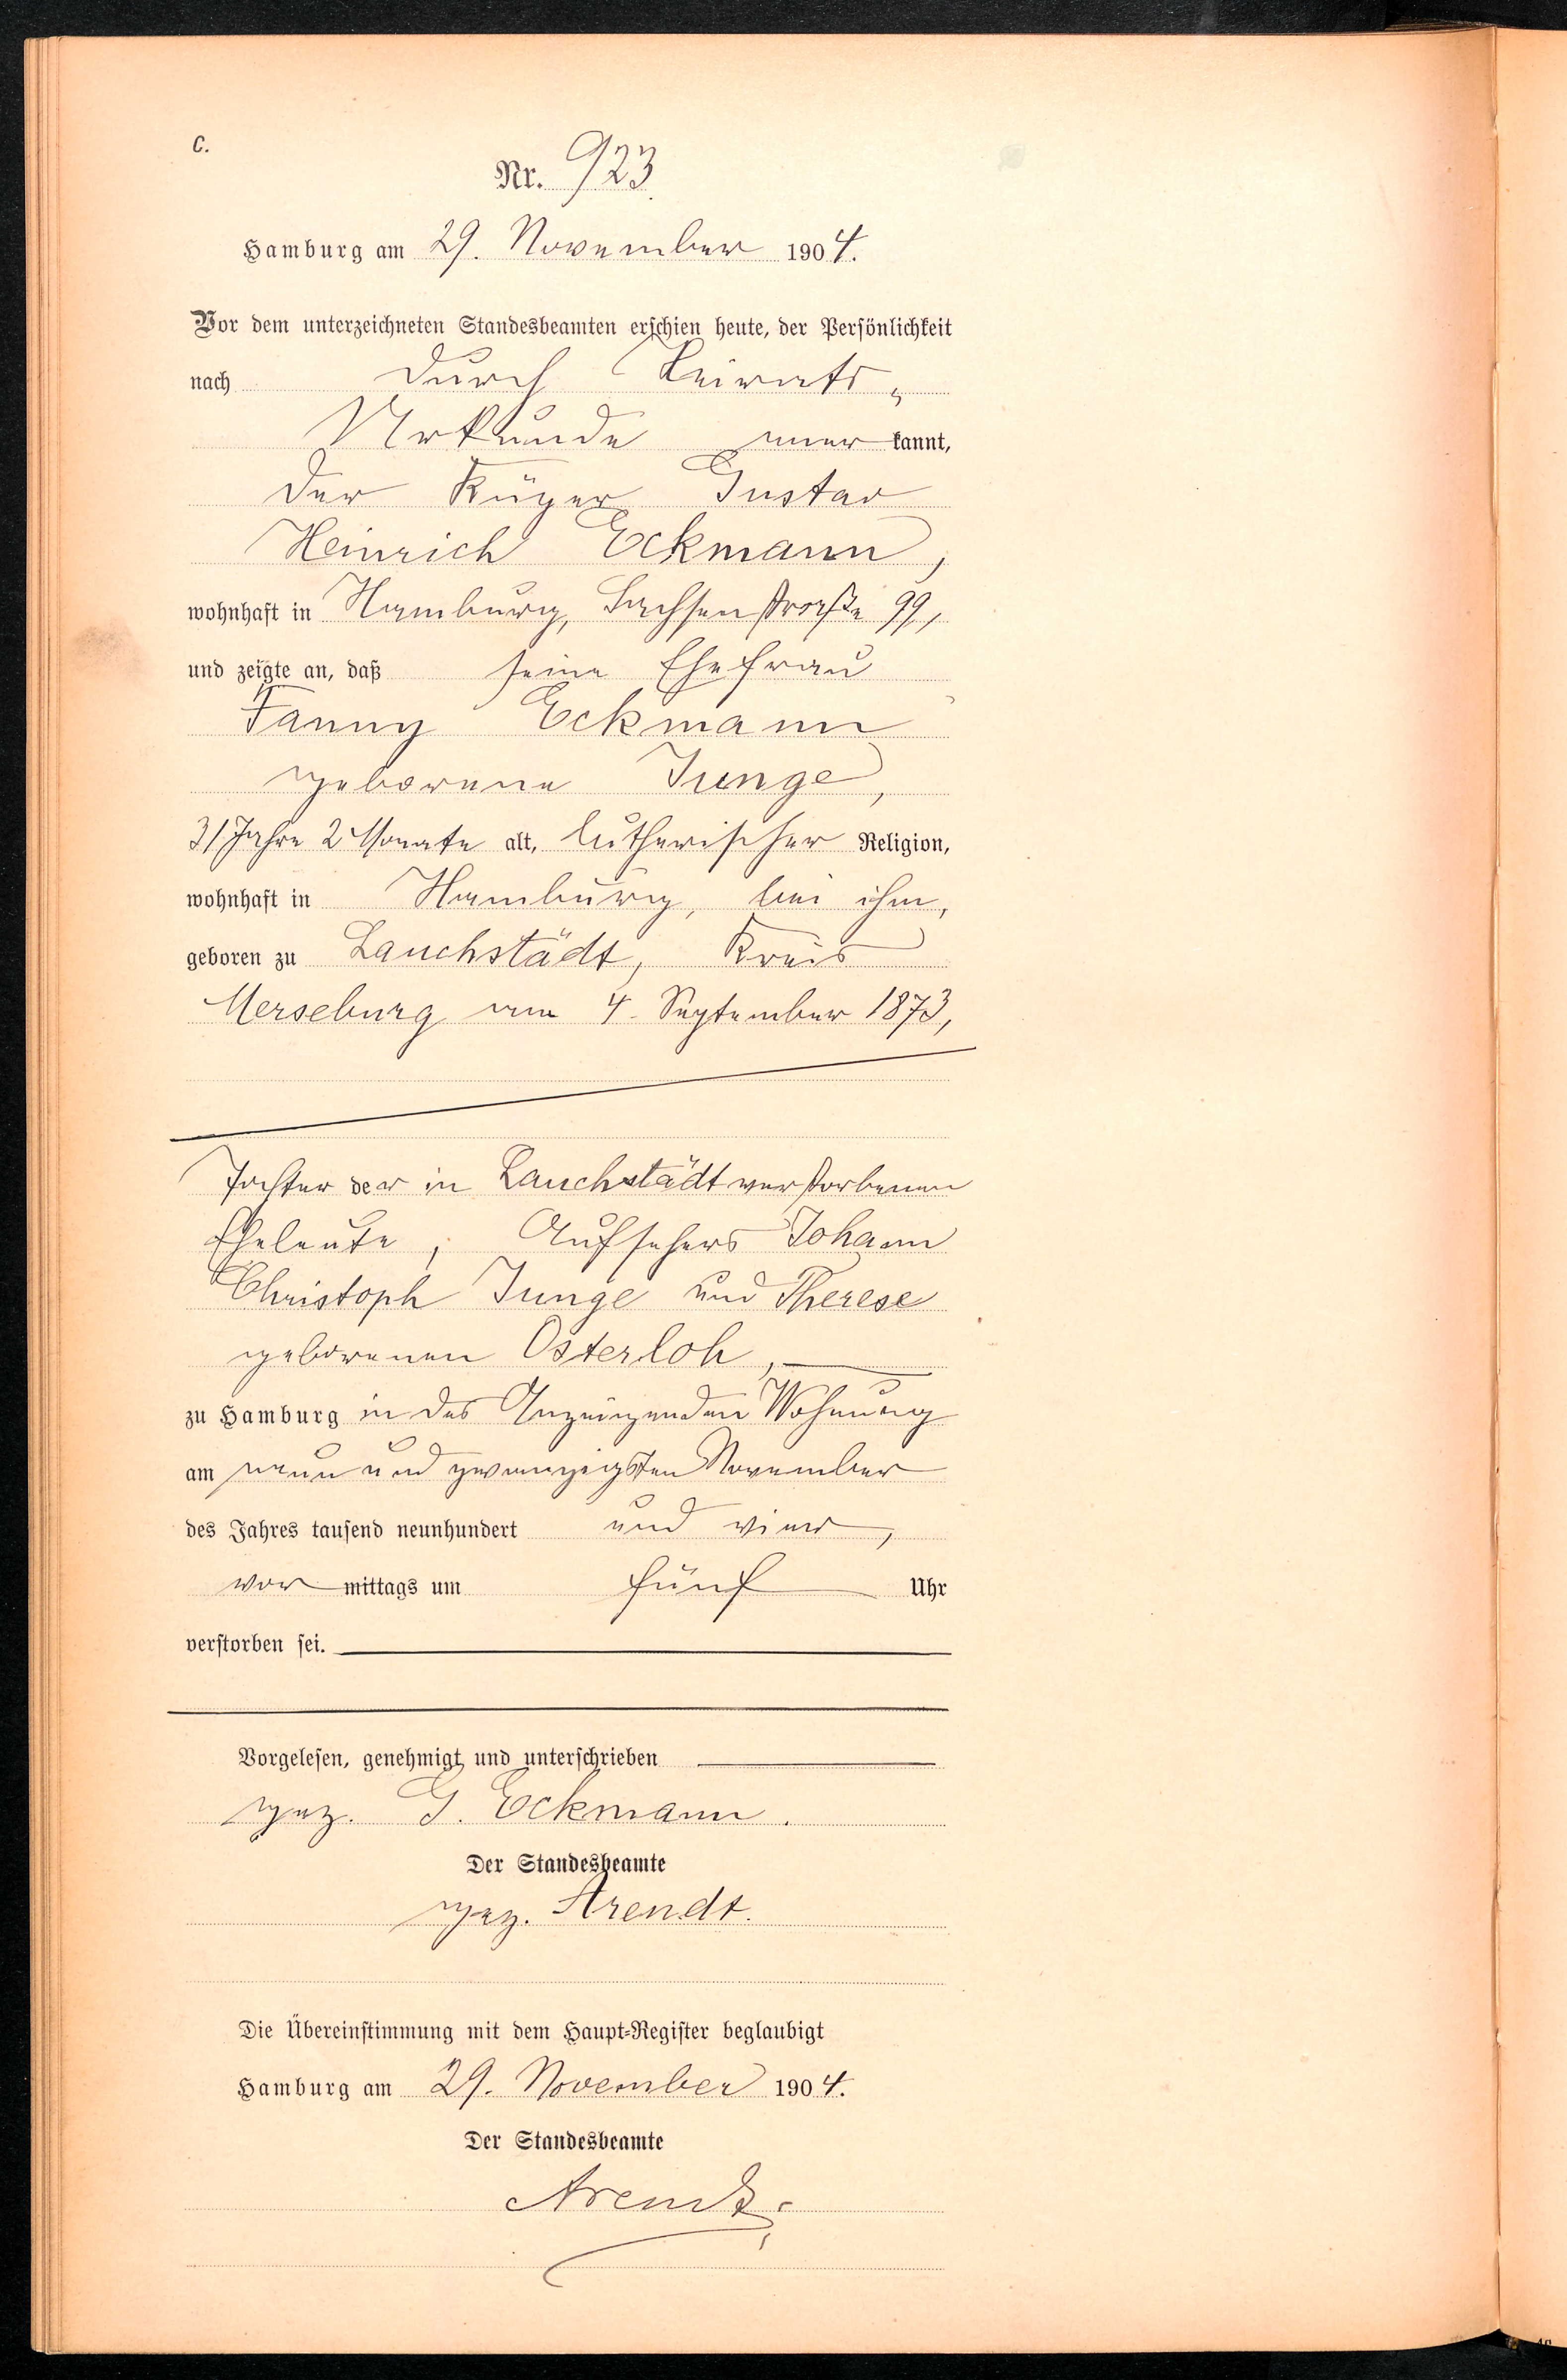 C.
Nr. 923.
Hamburg am 29. November 1904.
Vor dem unterzeichneten Standesbeamten erschien heute, der Persönlichkeit
nach durch Heirats-
Urkunde aner kannt,
der Küper Gustav
Heinrich Eckmann,
wohnhaft in Hamburg, Sachsenstraße 99,
und zeigte an, daß seine Ehefrau
Fanny Eckmann
geborene Junge,
31 Jahre 2 Monate alt, lutherischer Religion,
wohnhaft in Hamburg, bei ihm,
geboren zu Lauchstädt, Kreis
Merseburg am 4. September 1873,
Tochter der in Lauchstädt verstorbenen
Eheleute, Aufsehers Johann
Christoph Junge und Therese
geborenen Osterloh,
zu Hamburg in des Anzeigenden Wohnung
am neun und zwanzigsten November
des Jahres tausend neunhundert und vier,
vor mittags um fünf Uhr
verstorben sei.
Vorgelesen, genehmigt und unterschrieben
gez. G. Eckmann.
Der Standesbeamte
gez. Arendt.
Die Übereinstimmung mit dem Haupt-Register beglaubigt
Hamburg am 29. November 1904.
Der Standesbeamte
Arendt.